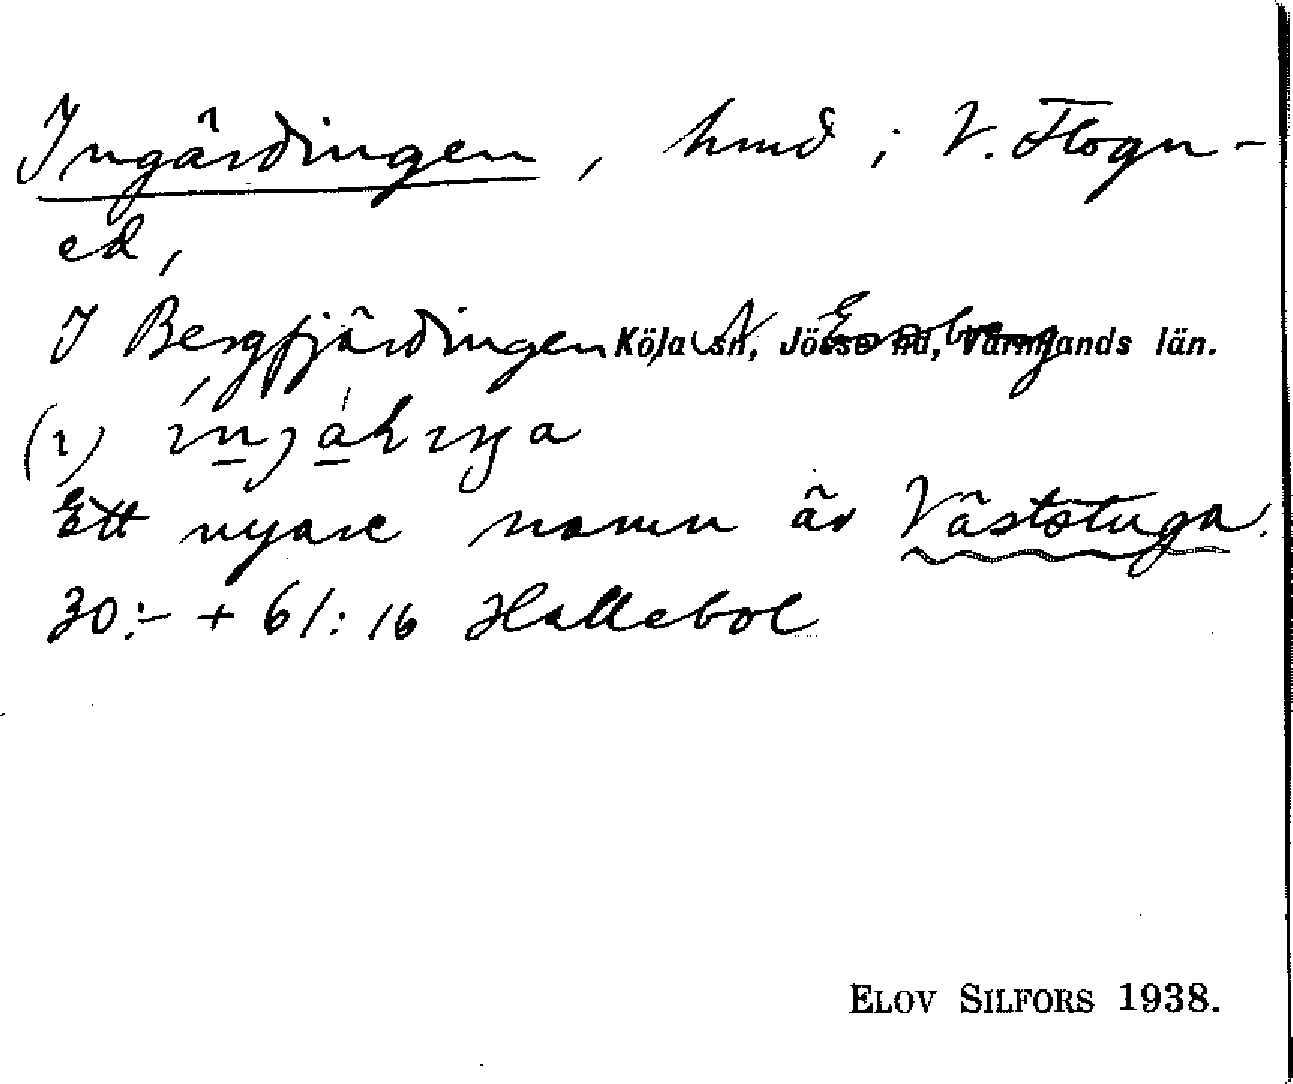 Ingärdingen, hmd ; V. Flogn-
ed,
I Bergfjärdingen Köla sn, Jösse hd, Värmlands län.
(i)
Ett nyare namn är Väststuga.
30:- + 61:16 Hallebol
ELOV SILFORS 1938.